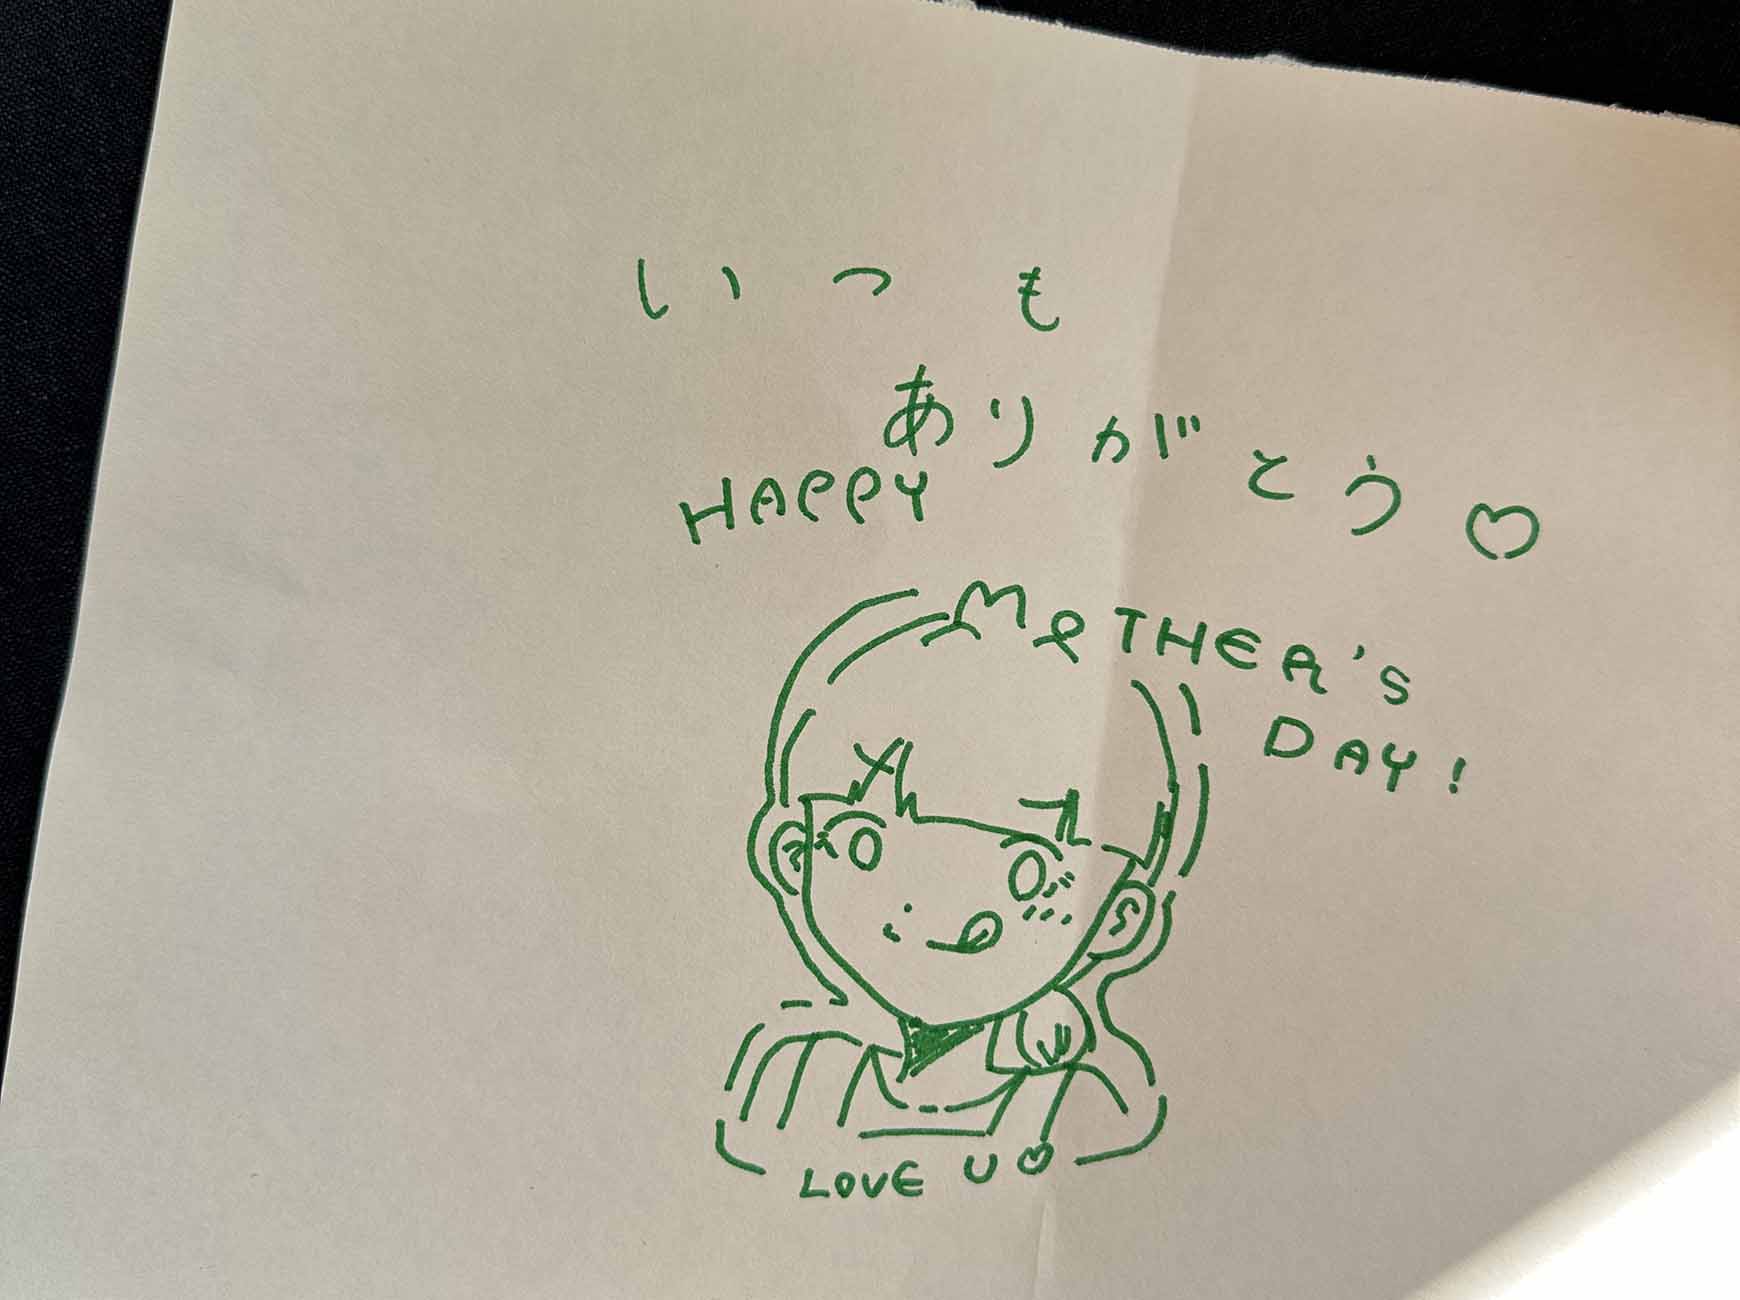 いつも
ありがとう♡
HAPPY
MOTHER'S
DAY!
LOVE U♡